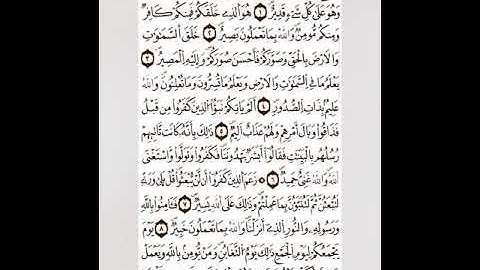 وَهُوَ عَلَىٰ كُلِّ شَيْءٍ قَدِيرٌ ١ هُوَ اَلذِے خَلَقَكُمْ فَمِنكُمْ كَافِرٌ
وَمِنكُم مُّؤْمِنٌ وَاللَّهُ بِمَا تَعْمَلُونَ بَصِيرٌ ٢ خَلَقَ اَلسَّمَٰوَٰتِ
وَالَارْضَ بِالْحَقِّ وَصَوَّرَكُمْ فَأَحْسَنَ صُوَرَكُمْ وَإِلَيْهِ اِلْمَصِيرُ ٣
يَعْلَمُ مَا فِے اِلسَّمَٰوَٰتِ وَالَارْضِ وَيَعْلَمُ مَا تُسِرُّونَ وَمَا تُعْلِنُونَ وَاللَّهُ
عَلِيمٌ بِذَاتِ اِلصُّدُورِ ٤ أَلَمْ يَاتِكُمْ نَبَؤُاْ اُلذِينَ كَفَرُواْ مِن قَبْلُ
فَذَاقُواْ وَبَالَ أَمْرِهِمْ وَلَهُمْ عَذَابٌ اَلِيمٌ ٥ ذَٰلِكَ بِأَنَّهُ كَانَت تَّاتِيهِمْ
رُسُلُهُم بِالْبَيِّنَٰتِ فَقَالُواْ أَبَشَرٌ يَهْدُونَنَا فَكَفَرُواْ وَتَوَلَّواْ وَّاسْتَغْنَى
اَللَّهُ وَاللَّهُ غَنِيٌّ حَمِيدٌ ٦ زَعَمَ اَلذِينَ كَفَرُواْ أَن لَّنْ يُّبْعَثُواْ قُلْ بَلَىٰ وَرَبِّے
لَتُبْعَثُنَّ ثُمَّ لَتُنَبَّؤُنَّ بِمَا عَمِلْتُمْ وَذَٰلِكَ عَلَى اَللَّهِ يَسِيرٌ ٧ فَـَٔامِنُواْ بِاللَّهِ
وَرَسُولِهِ وَالنُّورِ اِلذِے أَنزَلْنَا وَاللَّهُ بِمَا تَعْمَلُونَ خَبِيرٌ ٨ يَوْمَ
يَجْمَعُكُمْ لِيَوْمِ اِلْجَمْعِ ذَٰلِكَ يَوْمُ اُلتَّغَابُنِ وَمَنْ يُّومِنۢ بِاللَّهِ وَيَعْمَلْ